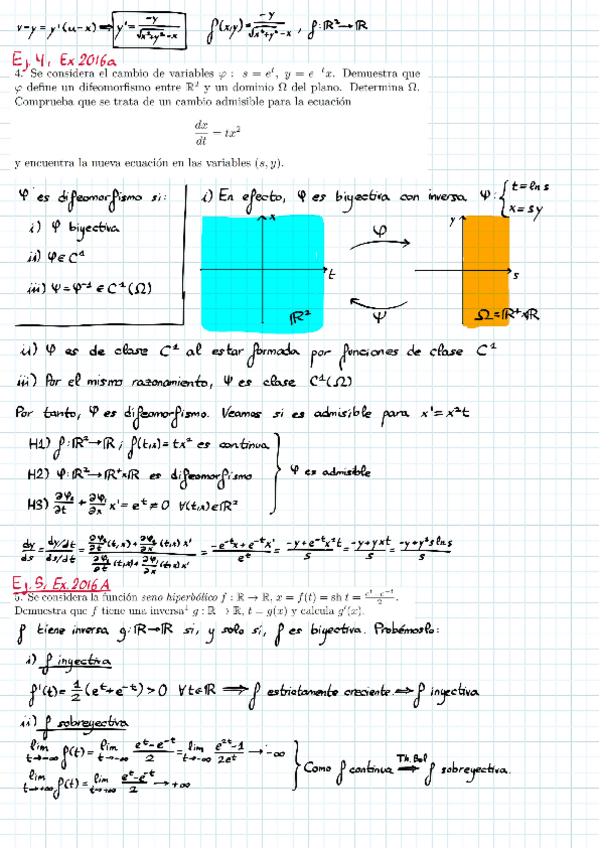 v-y = y'(u-x) ⟹ y' = -y/(√(x²+y²)-x)    f(x,y) = -y/(√(x²+y²)-x) , f: ℝ² → ℝ
Ej. 4, Ex 2016a
4. Se considera el cambio de variables φ : s = e^t, y = e^{-t}x. Demuestra que
φ define un difeomorfismo entre ℝ² y un dominio Ω del plano. Determina Ω.
Comprueba que se trata de un cambio admisible para la ecuación
dx/dt = tx²
y encuentra la nueva ecuación en las variables (s, y).
φ es difeomorfismo si:
i) φ biyectiva
ii) φ ∈ C¹
iii) ψ = φ⁻¹ ∈ C¹(Ω)
i) En efecto, φ es biyectiva con inversa ψ: { t = ln s
x = sy
x
t
ℝ²
φ
ψ
y
s
Ω = ℝ⁺×ℝ
ii) φ es de clase C¹ al estar formada por funciones de clase C¹
iii) Por el mismo razonamiento, ψ es clase C¹(Ω)
Por tanto, φ es difeomorfismo. Veamos si es admisible para x' = x²t
H1) f: ℝ² → ℝ ; f(t,x) = tx² es continua
H2) φ: ℝ² → ℝ⁺×ℝ es difeomorfismo
H3) ∂φ₁/∂t + ∂φ₁/∂x x' = e^t ≠ 0 ∀(t,x) ∈ ℝ²
} φ es admisible
dy/ds = (dy/dt)/(ds/dt) = (∂φ₂/∂t (t,x) + ∂φ₂/∂x (t,x) x')/(∂φ₁/∂t (t,x) + ∂φ₁/∂x (t,x) x') = (-e^{-t}x + e^{-t}x')/e^t = (-y + e^{-t}x²t)/s = (-y + yxt)/s = (-y + y²s ln s)/s
Ej. 5, Ex. 2016A
5. Se considera la función seno hiperbólico f : ℝ → ℝ, x = f(t) = sh t = (e^t - e^{-t})/2.
Demuestra que f tiene una inversa¹ g : ℝ → ℝ, t = g(x) y calcula g'(x).
f tiene inversa g: ℝ → ℝ si, y solo si, f es biyectiva. Probémoslo:
i) f inyectiva
f'(t) = 1/2 (e^t + e^{-t}) > 0 ∀t ∈ ℝ ⟹ f estrictamente creciente ⟹ f inyectiva
ii) f sobreyectiva
lim t→-∞ f(t) = lim t→-∞ (e^t - e^{-t})/2 = lim t→-∞ (e^{2t} - 1)/2e^t → -∞
lim t→+∞ f(t) = lim t→+∞ (e^t - e^{-t})/2 → +∞
} Como f continua ⟹ Th. Bol f sobreyectiva.